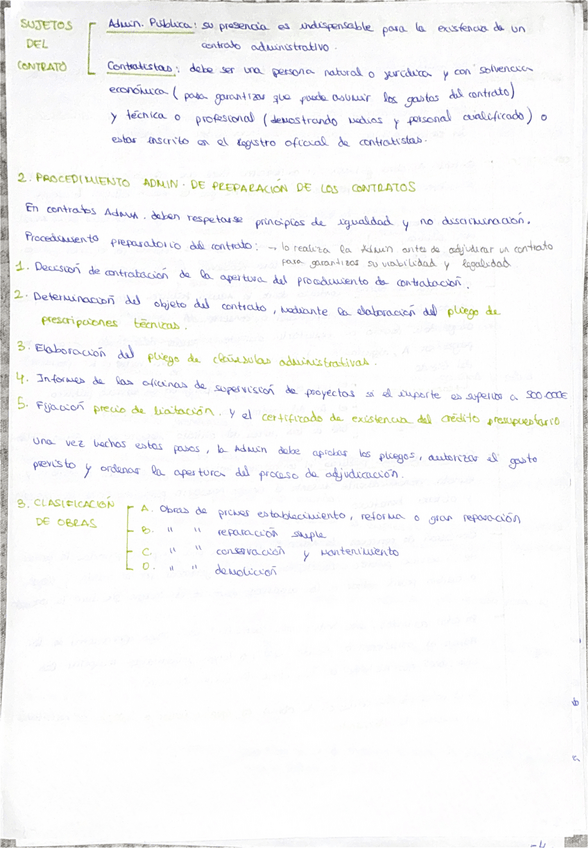 SUJETOS DEL CONTRATO
Admin. Pública: su presencia es indispensable para la existencia de un
contrato administrativo.
Contratistas: debe ser una persona natural o jurídica y con solvencia
económica (para garantizar que puede asumir los gastos del contrato)
y técnica o profesional (demostrando medios y personal cualificado) o
estar inscrito en el registro oficial de contratistas.
2. PROCEDIMIENTO ADMIN. DE PREPARACIÓN DE LOS CONTRATOS
En contratos Admin. deben respetarse principios de igualdad y no discriminación.
Procedimiento preparatorio del contrato: → lo realiza la Admin antes de adjudicar un contrato
para garantizar su viabilidad y legalidad
1. Decisión de contratación de la apertura del procedimiento de contratación.
2. Determinación del objeto del contrato, mediante la elaboración del pliego de
prescripciones técnicas.
3. Elaboración del pliego de cláusulas administrativas.
4. Informes de las oficinas de supervisión de proyectos si el importe es superior a 500.000€
5. Fijación precio de licitación. y el certificado de existencia del crédito presupuestario
Una vez hechos estos pasos, la Admin debe aprobar los pliegos, autorizar el gasto
previsto y ordenar la apertura del proceso de adjudicación.
3. CLASIFICACIÓN DE OBRAS
A. Obras de primer establecimiento, reforma o gran reparación
B. " " reparación simple
C. " " conservación y mantenimiento
D. " " demolición